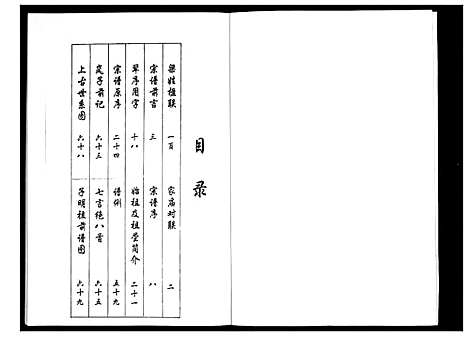 目录
梁姓楹联 一百 家庙对联 二
宗谱前言 三 宗谱序 八
班序用字 十八 始祖及祖茔简介 二十一
宗谱原序 二十四 谱例 五十九
戾子前记 六十三 七言绝八首 六十五
上古世系图 六十八 子明祖前谱图 六十九